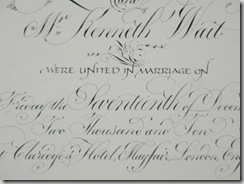 and
Mr. Kenneth Wait
WERE UNITED IN MARRIAGE ON
Friday the Seventeenth of
Two Thousand and Ten
Claridge's Hotel, Mayfair, London,